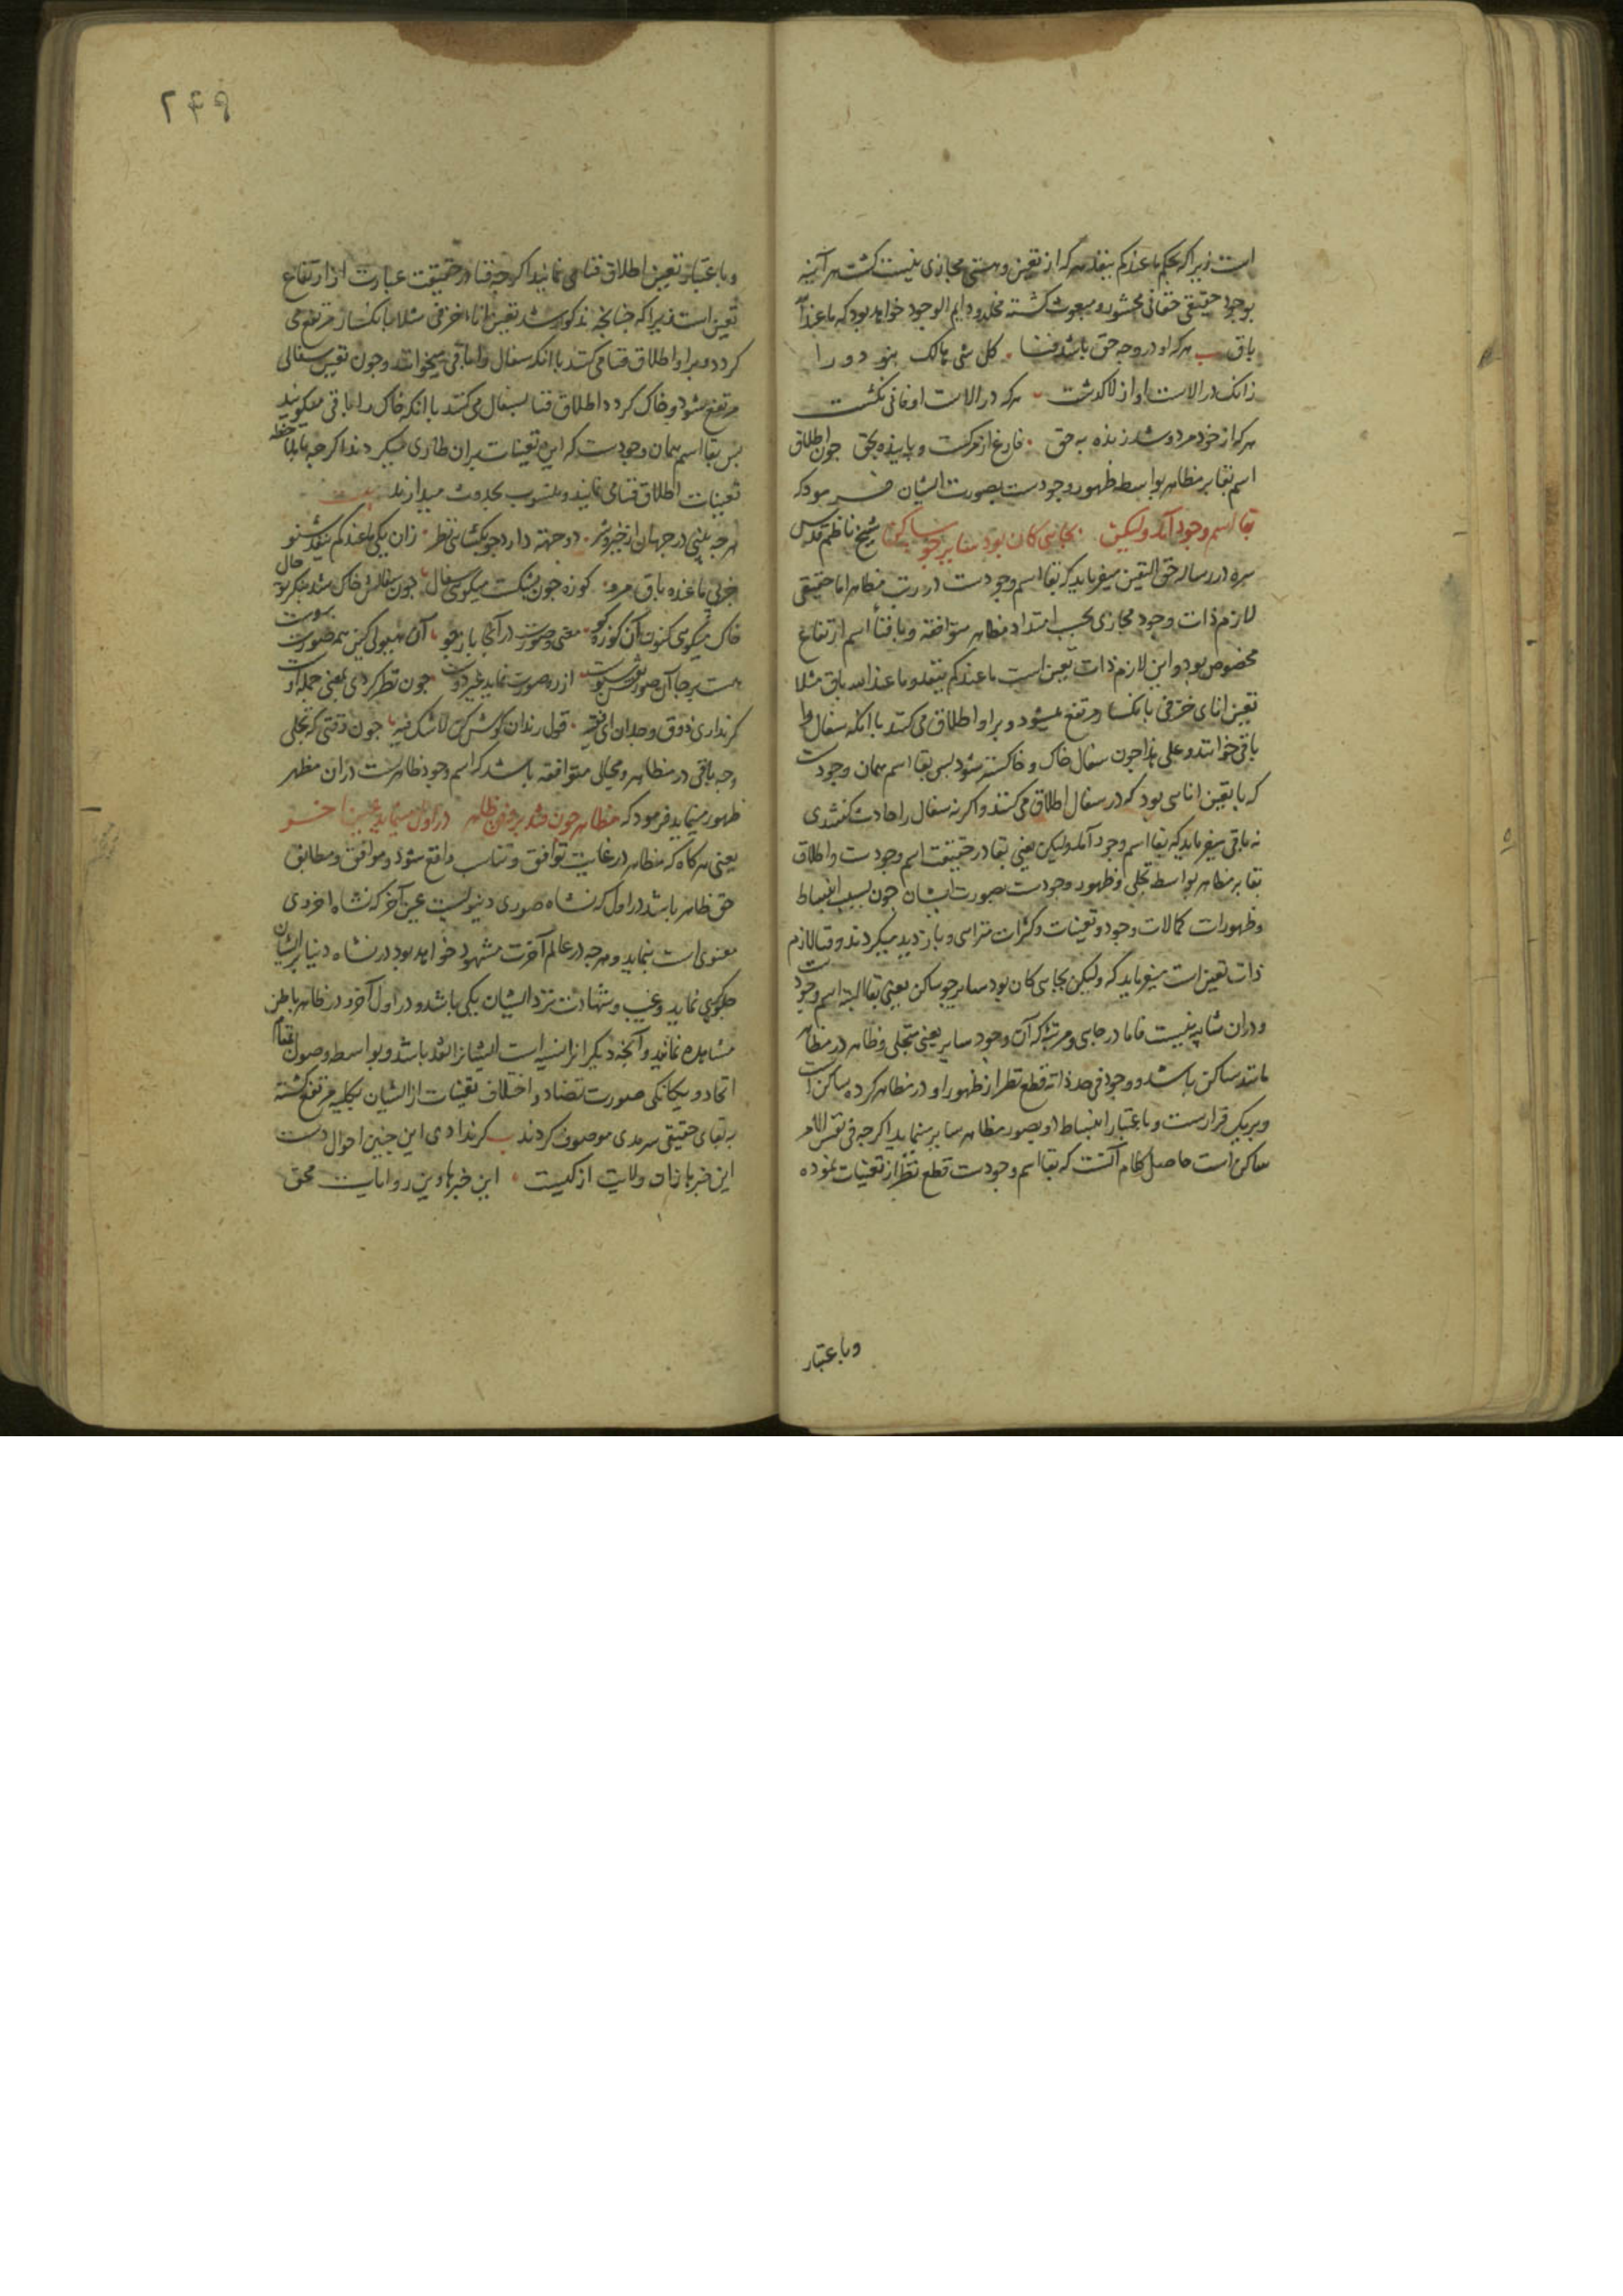 است زیرا که بحکم ما عندکم ینفد هر که از تعین و هستی مجازی نیست کشت هر آینه
بوجود حقیقی حقانی محشور و مبعوث کشته مخلد و دایم الوجود خواهد بود که ما عند الله
باق هر که او در وجه حق باشد فنا کل شی هالک نبود ورا
زانک در الاست او از لا کذشت هر که در الاست او فانی نکشت
هر که از خود مرد و شد زنده به حق فارغ از مرکست و پاینده بحق چون اطلاق
اسم بقا بر مظاهر بواسطه ظهور وجودست بصورت ایشان فرمود که
بقا اسم وجود آمد ولیکن بجایی کان بود سایر چو ساکن شیخ ناظم قدس
سره در رساله حق الیقین میفرماید که بقا اسم وجودست در مظاهر اما حقیقی
لازم ذات وجود مجازی بحسب امتداد مظاهر متوافقه و با فنا اسم ارتفاع
مخصوص بود و این لازم ذات تعین است ما عندکم ینفد و ما عند الله باق مثلا
تعین انای خزفی بانکسار مرتفع میشود و برو اطلاق می کنند با آنکه سفال را
باقی خوانند و علی هذا چون سفال خاک و خاکستر شود بس بقا اسم همان وجودست
که با تعین اناسی بود که در سفال اطلاق می کنند و اکر نه سفال را حادث کفتندی
نه باقی میفرماید که بقا اسم وجود آمد ولیکن یعنی بقا در حقیقت اسم وجودست و اطلاق
بقا بر مظاهر بواسطه تجلی و ظهور وجودست بصورت ایشان چون بسبب انبساط
و ظهورات کمالات وجود و تعینات و کثرات متراسی و بازدید میکردند و فنا لازم
ذات تعین است میفرماید که ولیکن بجایی کان بود سایر چو ساکن یعنی بقا البته اسم وجودست
و در آن شایبه نیست فاما در جایی و مرتبه که آن وجود سایر یعنی متجلی و ظاهر در مظاهر
مانند ساکن باشد و وجود فی حد ذاته قطع نظر از ظهور او در مظاهر کرده ساکن است
و بر یک قرارست و باعتبار انبساط او بصور مظاهر سایر مینماید اکرچه فی نفس الامر
ساکن است حاصل کلام آنست که بقا اسم وجودست قطع نظر از تعینات نموده
وباعتبار
۲۴۹
و باعتبار تعین اطلاق فنا می نمایند اکرچه فنا در حقیقت عبارت از ارتفاع
تعین است زیرا که چنانچه مذکور شد تعین اناء خزفی مثلا بانکسار مرتفع می
کردد و برو اطلاق فنا می کنند با آنکه سفال را باقی میخوانند و چون تعین سفالی
مرتفع میشود و خاک کردد اطلاق فنا بسفال می کنند با آنکه خاک را باقی میکویند
بس بقا اسم همان وجودست که این تعینات بر آن طاری میکردند اکرچه بملاحظه
تعینات اطلاق فنا می نمایند و منسوب بحدوث میدارند بیت
هر چه بینی در جهان از خیر و شر دو جهته دارد چو بکشایی نظر زان یکی ما عندکم ینفد شنو
جزی ما عنده باق مرو کوزه چون بشکست میکوی سفال چون سفالش خاک شد بنکر تو حال
خاک میکوی کنون آن کوزه کو معنی وحدت در آنجا باز جو آن هیولی کین همه صورت بروست
هست بر جا آن صور از ره صورت نماید غیر دوست چون نظر کردی بمعنی جمله اوست
کر نداری ذوق و وجدان ای فقیر قول رندان کوش کن لا شک فیه چون وقتی که تجلی
وجه باقی در مظاهر و مجالی متوافقه باشد که اسم وجود ظاهرست در آن مظهر
ظهور مینماید فرمود که مظاهر چون فتد بر وفق ظاهر در اول مینماید عین آخر
یعنی هر کاه که مظاهر در غایت توافق و تناسب واقع شود و موافق و مطابق
حق ظاهر باشد در اول که نشاه صوری دنیویست عین آخر که نشاه اخروی
معنوی است بنماید و هر چه در عالم آخرت مشهود خواهد بود در نشاه دنیا بر ایشان
جلوکری نماید و غیب و شهادت نزد ایشان یکی باشد و در اول آخر و در ظاهر باطن
مشاهده نمایند و آنچه دیکران را نسیه است ایشانرا نقد باشد و بواسطه وصول بمقام
اتحاد و یکانکی صورت تضاد و اختلاف تعینات از ایشان بکلیه مرتفع کشته
به بقای حقیقی سرمدی موصوف کردند کر نداری این چنین احوال دست
این خبرها زان ولایت از کیست این خبرها وین روایات محق